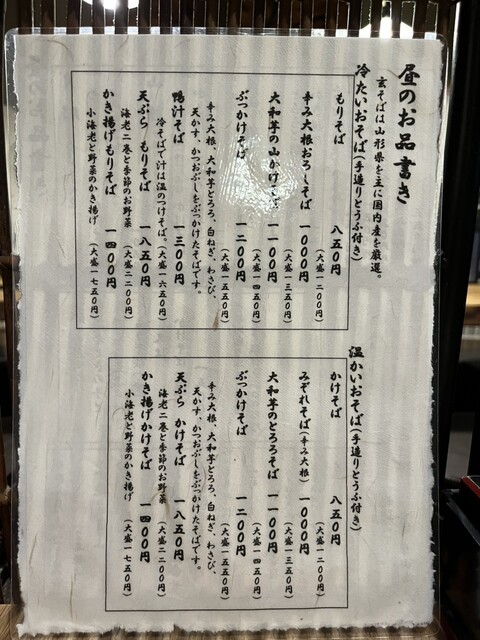 昼のお品書き
玄そばは山形県を主に国内産を厳選。
冷たいおそば(手造りとうふ付き)
もりそば 八五〇円
(大盛一二〇〇円)
辛み大根おろしそば 一〇〇〇円
(大盛一三五〇円)
大和芋の山かけそば 一一〇〇円
(大盛一四五〇円)
ぶっかけそば 一二〇〇円
(大盛一五五〇円)
辛み大根、大和芋とろろ、白ねぎ、わさび、
天かす、かつおぶしをぶっかけたそばです。
鴨汁そば 一三〇〇円
冷そばで汁は温のつけそば。(大盛一六五〇円)
天ぷら もりそば 一八五〇円
海老二巻と季節のお野菜 (大盛二二〇〇円)
かき揚げもりそば 一四〇〇円
小海老と野菜のかき揚げ (大盛一七五〇円)
温かいおそば(手造りとうふ付き)
かけそば 八五〇円
(大盛一二〇〇円)
みぞれそば(辛み大根) 一〇〇〇円
(大盛一三五〇円)
大和芋のとろろそば 一一〇〇円
(大盛一四五〇円)
ぶっかけそば 一二〇〇円
(大盛一五五〇円)
辛み大根、大和芋とろろ、白ねぎ、わさび、
天かす、かつおぶしをぶっかけたそばです。
天ぷら かけそば 一八五〇円
海老二巻と季節のお野菜 (大盛二二〇〇円)
かき揚げかけそば 一四〇〇円
小海老と野菜のかき揚げ (大盛一七五〇円)